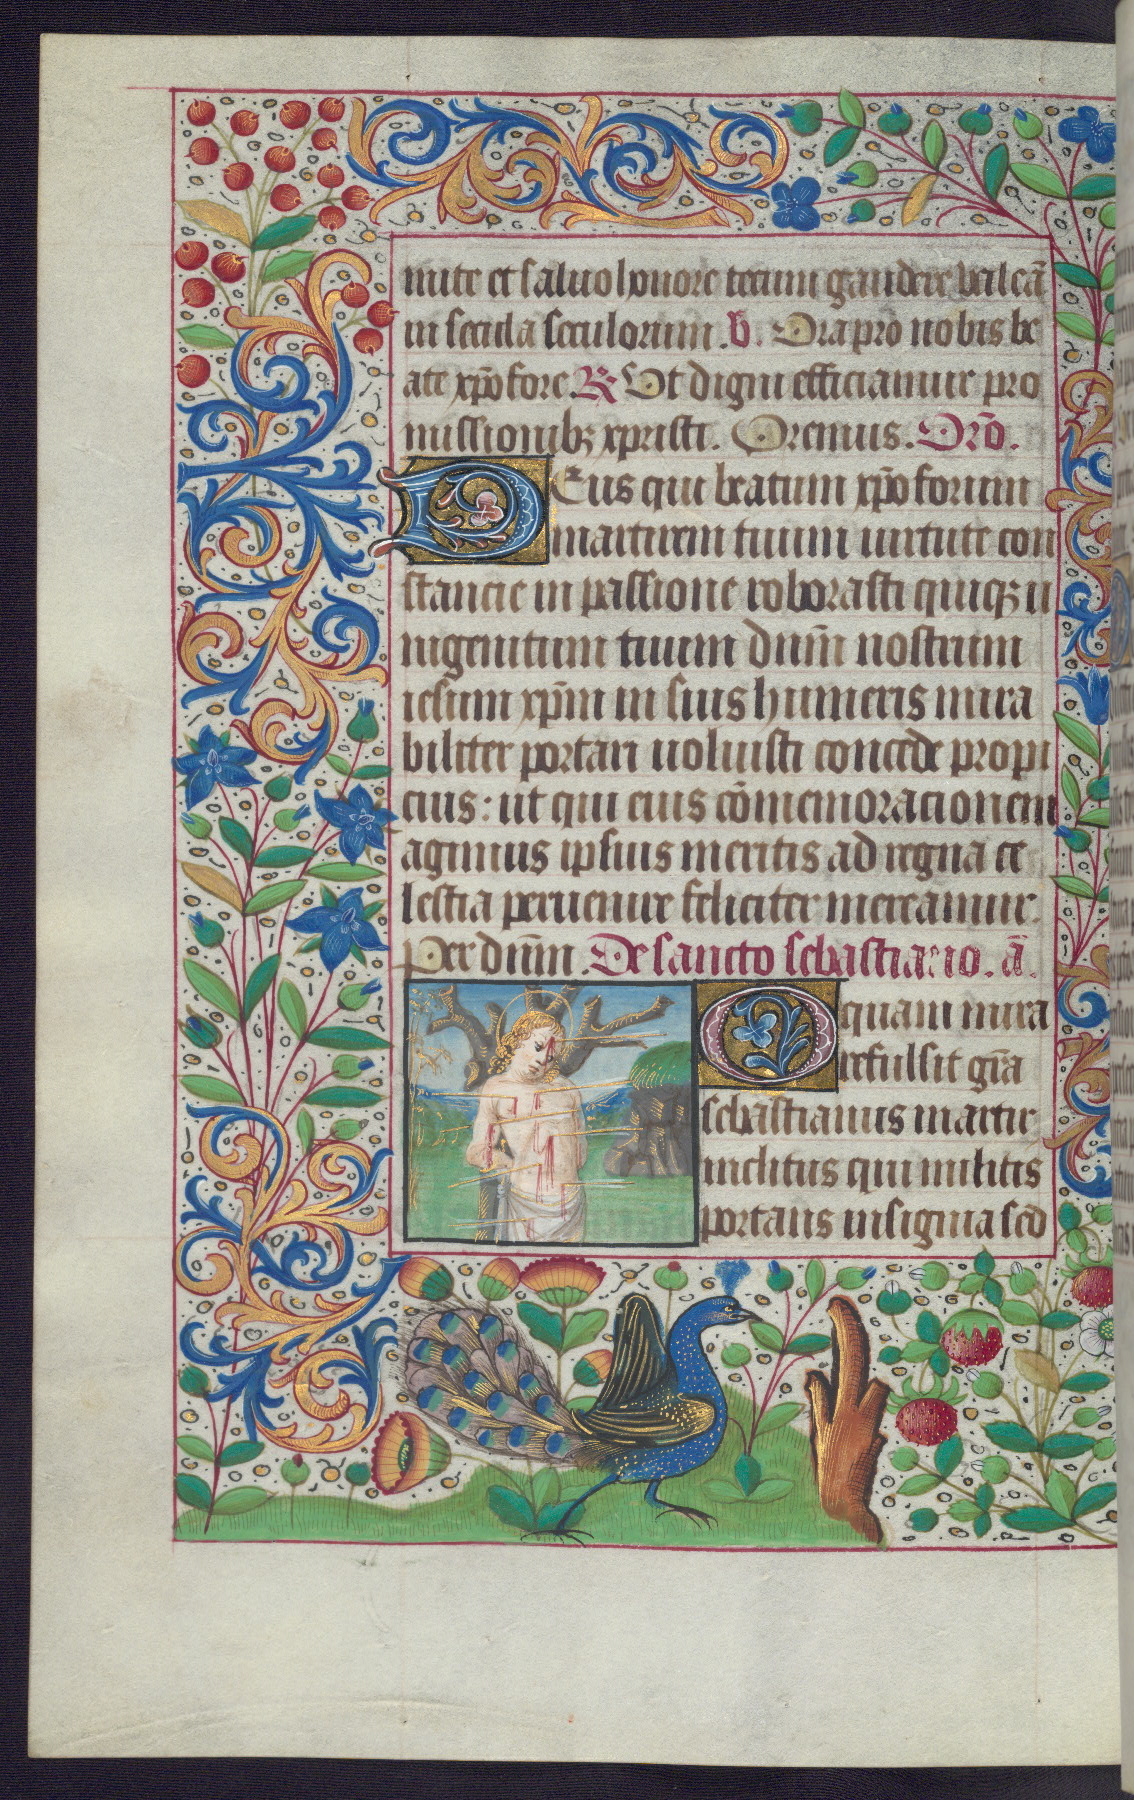 mite et saluo honore tecum gaudere valeā
in secula seculorum. V. Ora pro nobis be
ate xp̄ofore R Ut digni efficiamur pro
missionibꝫ xpristi. Oremus. Or̄o.
DEus qui beatum xp̄oforum
martirem tuum uirtute con
stancie in passione roborasti quiqꝫ u
nigenitum tuum dūm nostrum
iesum xp̄m in suis humeris mira
biliter portari uoluisti concede propi
cius: ut qui eius cōmemoracionem
agimus ipsius meritis ad regna ce
lestia peruenire feliciter mereamur.
Per dūm. De sancto sebastiano. ā.
O quam mira
refulsit grā
sebastianus martir
inclitus qui militis
portans insignia sed